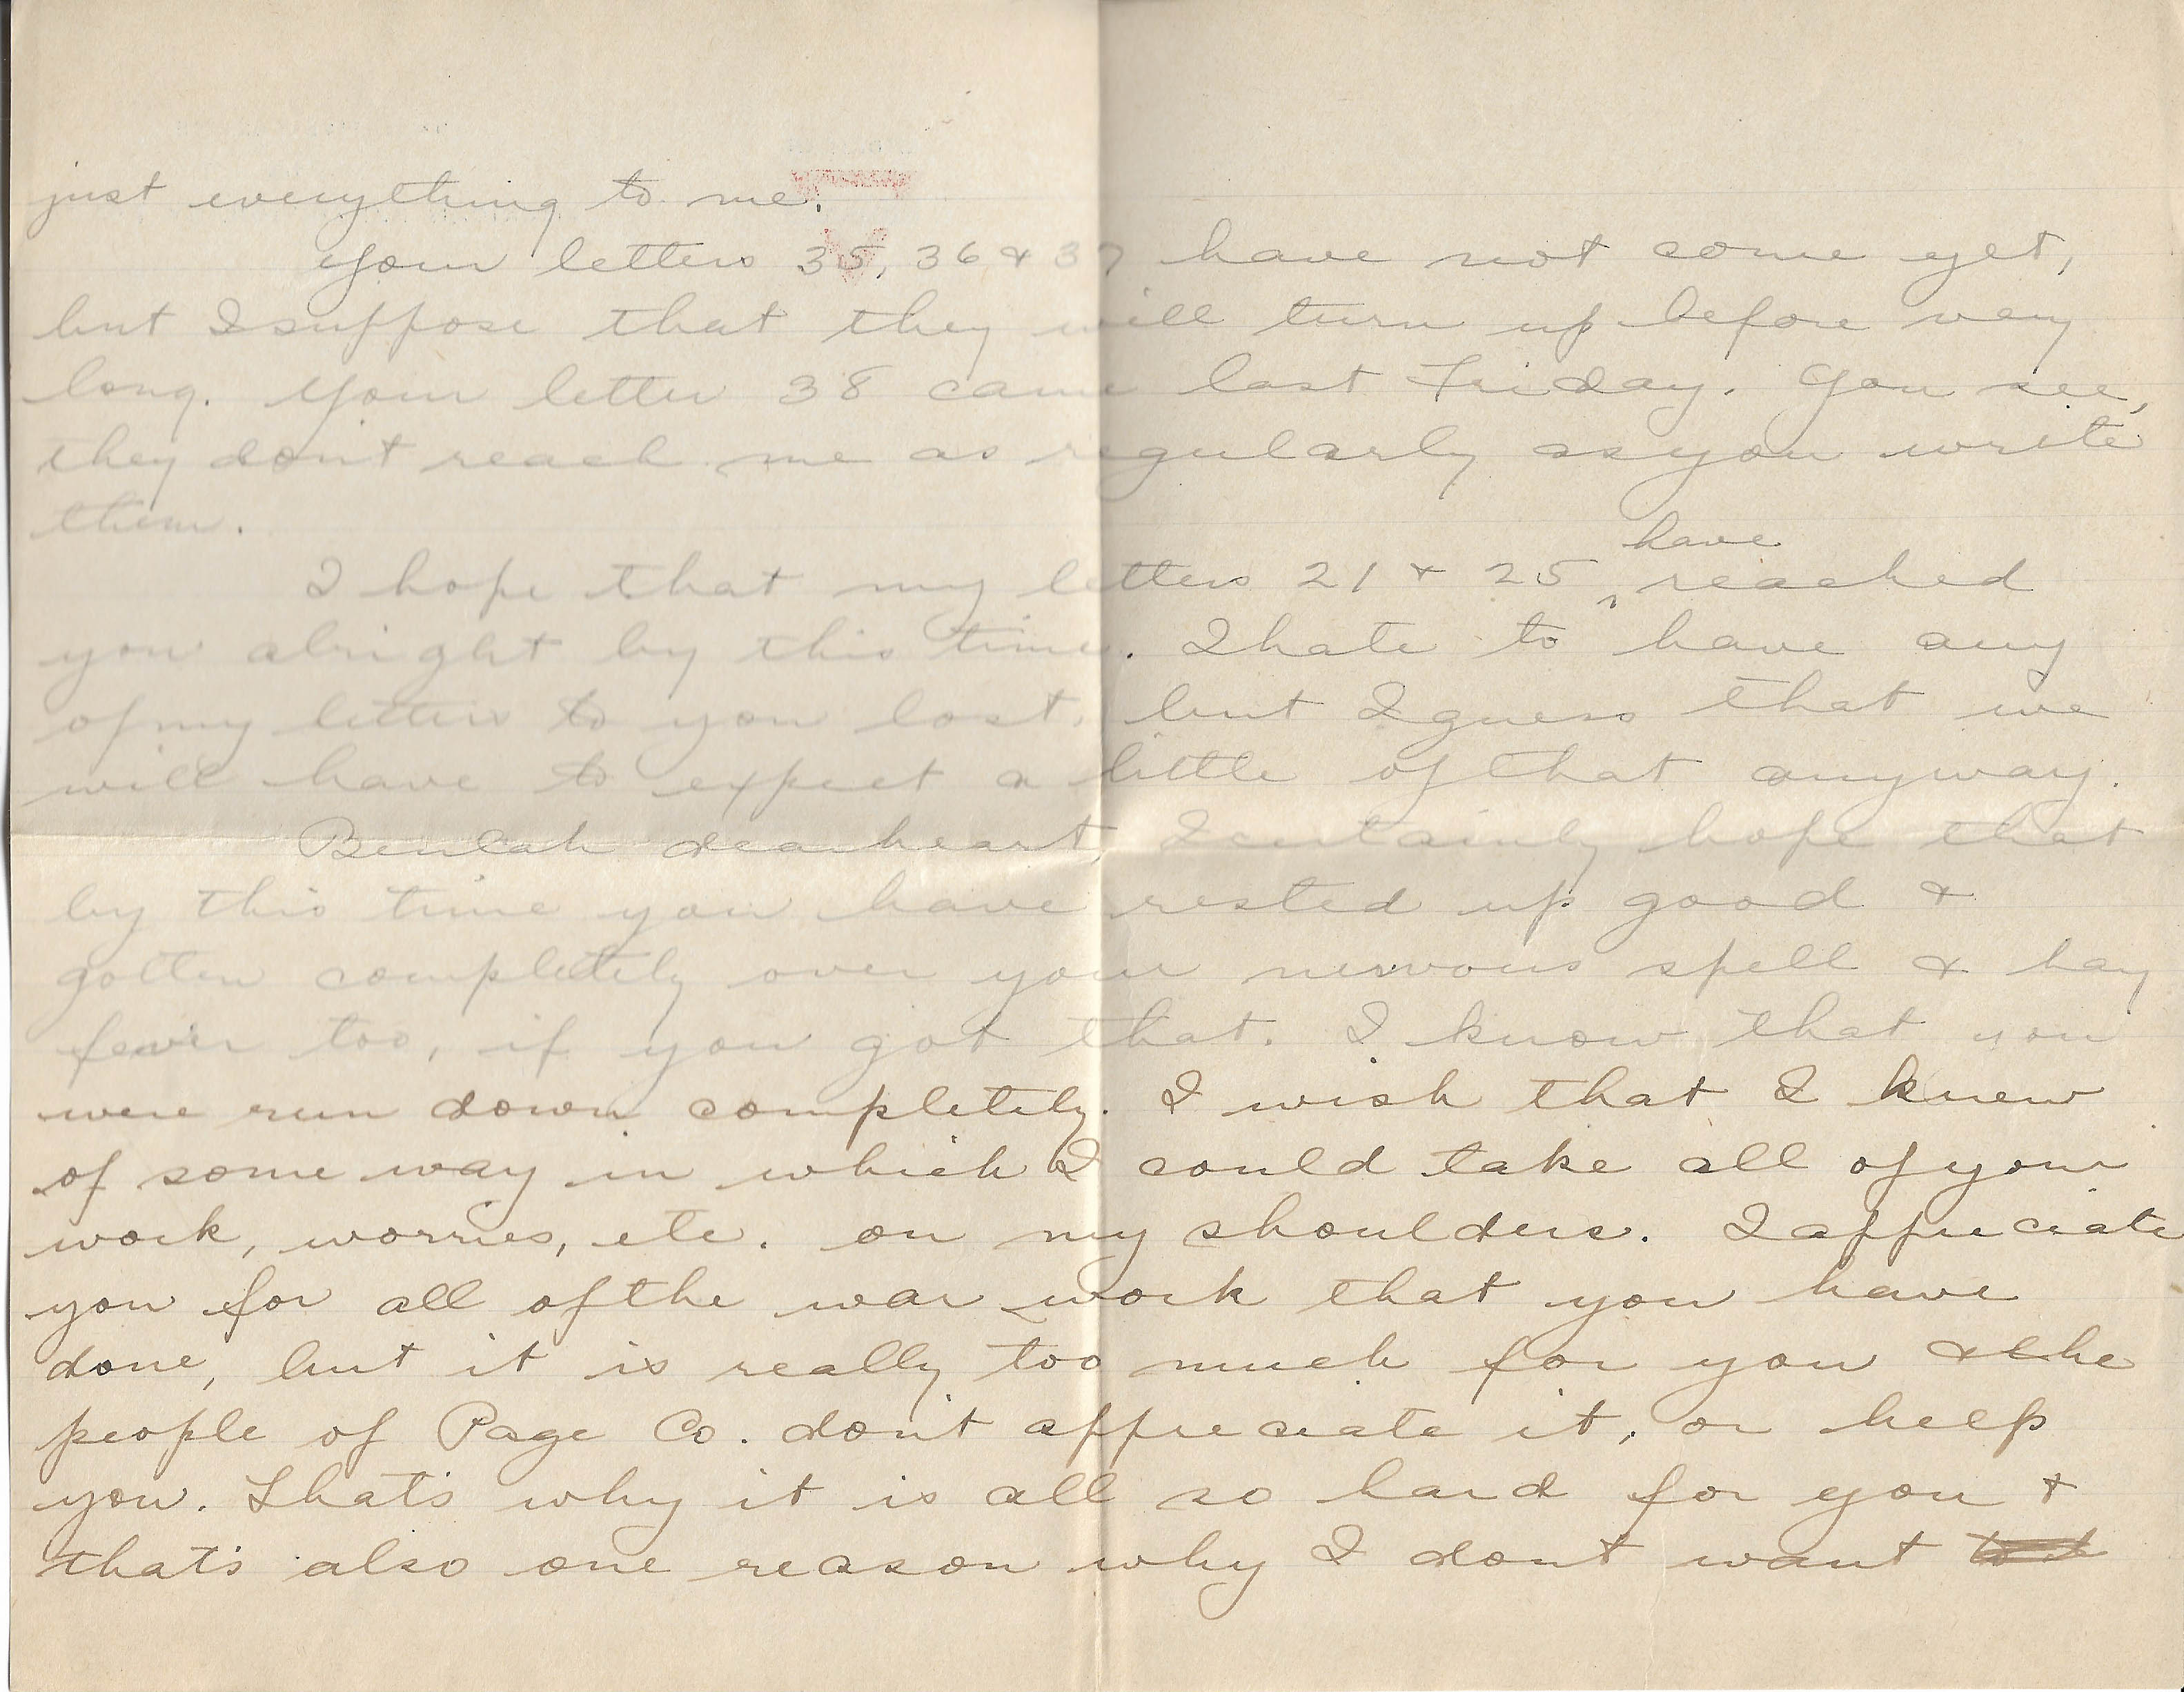 just everything to me.
Your letters 35, 36 & 37 have not come yet,
but I suppose that they will turn up before very
long. Your letter 38 came last Friday. You see,
they don't reach me as regularly as you write
them.
have
I hope that my letters 21 & 25 ‸ reached
you alright by this time. I hate to have any
of my letters to you lost, but I guess that we
will have to expect a little of that anyway.
Beulah dearheart I certainly hope that
by this time you have rested up good &
gotten completely over your nervous spell & hay
fever too, if you got that. I know that you
were run down completely. I wish that I knew
of some way in which I could take all of your
work, worries, etc. on my shoulders. I appreciate
you for all of the war work that you have
done, but it is really too much for you & the
people of Page Co. don't appreciate it, or help
you. That's why it is all so hard for you &
that's also one reason why I dont want